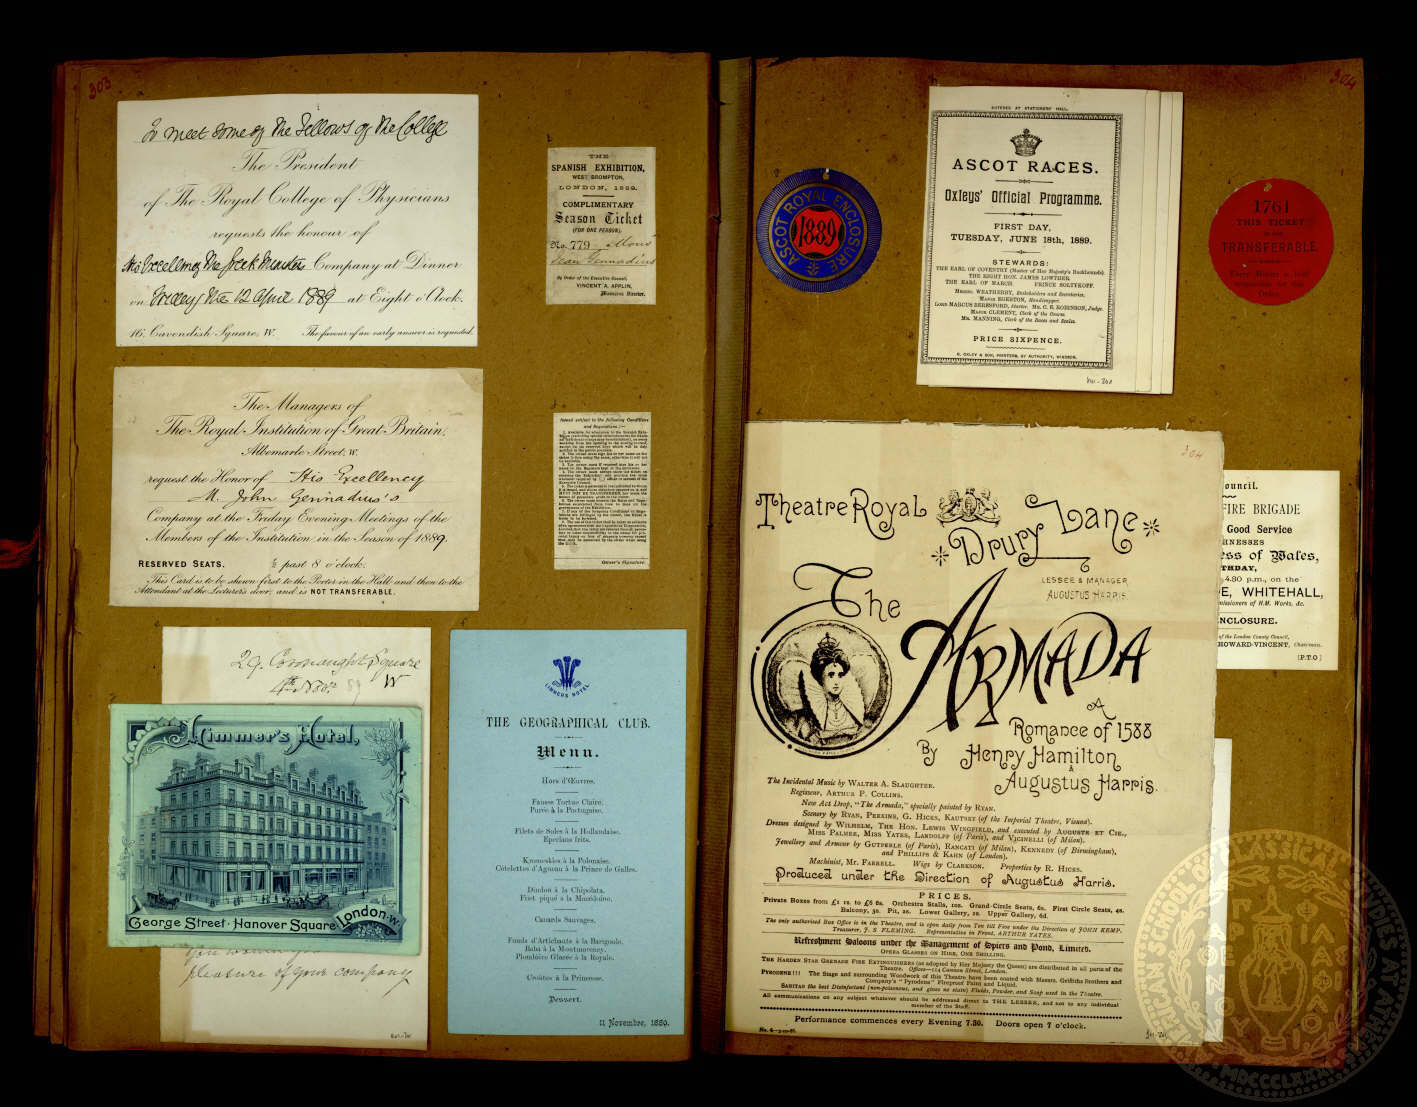 303
To meet some of the Fellows of the College
The President
of The Royal College of Physicians
requests the honour of
His Excellency the Greek Minister's Company at Dinner
on Friday the 12 April 1889 at Eight o'Clock.
16, Cavendish Square, W. The favour of an early answer is requested.
THE
SPANISH EXHIBITION,
WEST BROMPTON,
LONDON, 1889.
COMPLIMENTARY
Season Ticket
(FOR ONE PERSON).
No. 779 Monsr
Jean Gennadius
By Order of the Executive Council,
VINCENT A. APPLIN,
Managing Director.
The Managers of
The Royal Institution of Great Britain,
Albemarle Street, W.
request the Honor of His Excellency
M. John Gennadius's
Company at the Friday Evening Meetings of the
Members of the Institution in the Season of 1889
RESERVED SEATS. ½ past 8 o'clock.
This Card is to be shewn first to the Porter in the Hall and then to the
Attendant at the Lecturer's door; and is NOT TRANSFERABLE.
Issued subject to the following Conditions
and Regulations:—
Owner's Signature
29. Connaught Square
W
4th Novr. 89
Limmer's Hotel,
George Street · Hanover Square London·W
pleasure of your company
LIMMERS HOTEL
THE GEOGRAPHICAL CLUB.
Menu.
Hors d'Œuvres.
Fausse Tortue Claire.
Purée à la Portugaise.
Filets de Soles à la Hollandaise.
Eperlans frits.
Kromeskies à la Polonaise.
Côtelettes d'Agneau à la Prince de Galles.
Dindon à la Chipolata.
Filet piqué à la Macédoine.
Canards Sauvages.
Fonds d'Artichauts à la Barigoule.
Baba à la Montmorency.
Plombière Glacée à la Royale.
Croûtes à la Princesse.
Dessert.
11 Novembre, 1889.
304
ASCOT ROYAL ENCLOSURE
1889
ENTERED AT STATIONERS' HALL.
ASCOT RACES.
Oxleys' Official Programme.
FIRST DAY,
TUESDAY, JUNE 18th, 1889.
STEWARDS:
THE EARL OF COVENTRY (Master of Her Majesty's Buckhounds).
THE RIGHT HON. JAMES LOWTHER.
THE EARL OF MARCH. PRINCE SOLTYKOFF.
Messrs. WEATHERBY, Stakeholders and Secretaries.
Major EGERTON, Handicapper.
Lord MARCUS BERESFORD, Starter. Mr. C. E. ROBINSON, Judge.
Major CLEMENT, Clerk of the Course.
Mr. MANNING, Clerk of the Races and Scales.
PRICE SIXPENCE.
R. OXLEY & SON, PRINTERS, BY AUTHORITY, WINDSOR.
1761
THIS TICKET
IS NOT
TRANSFERABLE
304
Theatre Royal
Drury Lane
LESSEE & MANAGER
AUGUSTUS HARRIS
The
ARMADA
A
Romance of 1588
By Henry Hamilton
&
Augustus Harris.
The Incidental Music by WALTER A. SLAUGHTER.
Regisseur, ARTHUR P. COLLINS.
New Act Drop, "The Armada," specially painted by RYAN.
Scenery by RYAN, PERKINS, G. HICKS, KAUTSKY (of the Imperial Theatre, Vienna).
Dresses designed by WILHELM, THE HON. LEWIS WINGFIELD, and executed by AUGUSTE ET CIE.,
MISS PALMER, MISS YATES, LANDOLFF (of Paris), and VICINELLI (of Milan).
Jewellery and Armour by GUTPERLE (of Paris), RANCATI (of Milan), KENNEDY (of Birmingham),
and PHILLIPS & KAHN (of London).
Machinist, MR. FARRELL. Wigs by CLARKSON. Properties by R. HICKS.
Produced under the Direction of Augustus Harris.
PRICES.
Private Boxes from £1 1s. to £6 6s. Orchestra Stalls, 10s. Grand Circle Seats, 6s. First Circle Seats, 4s.
Balcony, 3s. Pit, 2s. Lower Gallery, 1s. Upper Gallery, 6d.
The only authorised Box Office is in the Theatre, and is open daily from Ten till Five under the Direction of JOHN KEMP.
Treasurer, J. S. FLEMING. Representative in Front, ARTHUR YATES.
Refreshment Saloons under the Management of Spiers and Pond, Limited.
OPERA GLASSES ON HIRE, ONE SHILLING.
THE HARDEN STAR GRENADE FIRE EXTINGUISHERS (as adopted by Her Majesty the Queen) are distributed in all parts of the
Theatre. Offices—114 Cannon Street, London.
PYRODENE!!! The Stage and surrounding Woodwork of this Theatre have been coated with Messrs. Griffiths Brothers and
Company's "Pyrodene" Fireproof Paint and Liquid.
SANITAS the best Disinfectant (non-poisonous, and gives no stain) Fluids, Powder, and Soap used in the Theatre.
All communications on any subject whatever should be addressed direct to THE LESSEE, and not to any individual
member of the Staff.
Performance commences every Evening 7.30. Doors open 7 o'clock.
ouncil.
FIRE BRIGADE
Good Service
RNESSES
ess of Wales,
THDAY,
4.30 p.m., on the
E, WHITEHALL,
missioners of H.M. Works, &c.
NCLOSURE.
of the London County Council,
HOWARD-VINCENT, Chairman.
[P.T.O]
AMERICAN SCHOOL OF CLASSICAL STUDIES AT ATHENS
MDCCCLXXXI